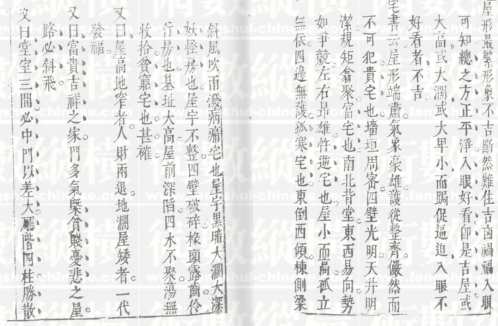 屋形最緊形象不爾然雖住吉凶禍福入眼
可知總之方正平淨入眼好看即是吉屋或
大高或大濶或大卑小而跼促逼迫入眼不
好看者不吉
宅書云屋形端肅氣象豪雄護從整齊儼然而
不可犯貴宅也墻垣周密四壁光明天井明
潔規矩翕聚富宅也南北背堂東西易向勢
如爭競左右昂雄忤逆宅也屋小而高孤立
無依四邊無護孤寒宅也東倒西傾棟側梁
斜風吹雨潑病癆宅也屋宇黒暗大濶大深
妖怪房也屋宇不整四壁破碎椽頭露齒伶
仃房也基址大高屋前深陷四水不聚蕩無
收拾貧窮宅也甚確
又曰屋高地窄者人財兩退地濶屋矮者一代
發福
又曰富貴吉祥之家門多氣槩貧賤憂悲之屋
路必斜飛
又曰堂室三間必中門以差大廳階四柱勝散